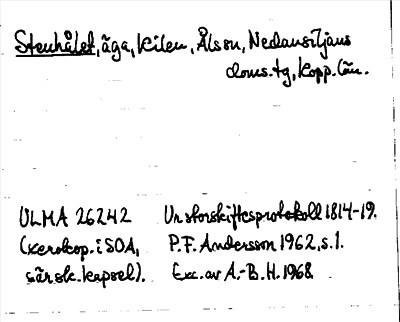 Stenhålet, äga, Kilen, Ål sn, Nedansiljans
doms.tg, Kopp. län.
ULMA 26242 Ur storskiftesprotokoll 1814-19.
(xerokop. i SOA, P.F. Andersson 1962, s. 1.
särsk. kapsel). Exc. av A.-B. H. 1968